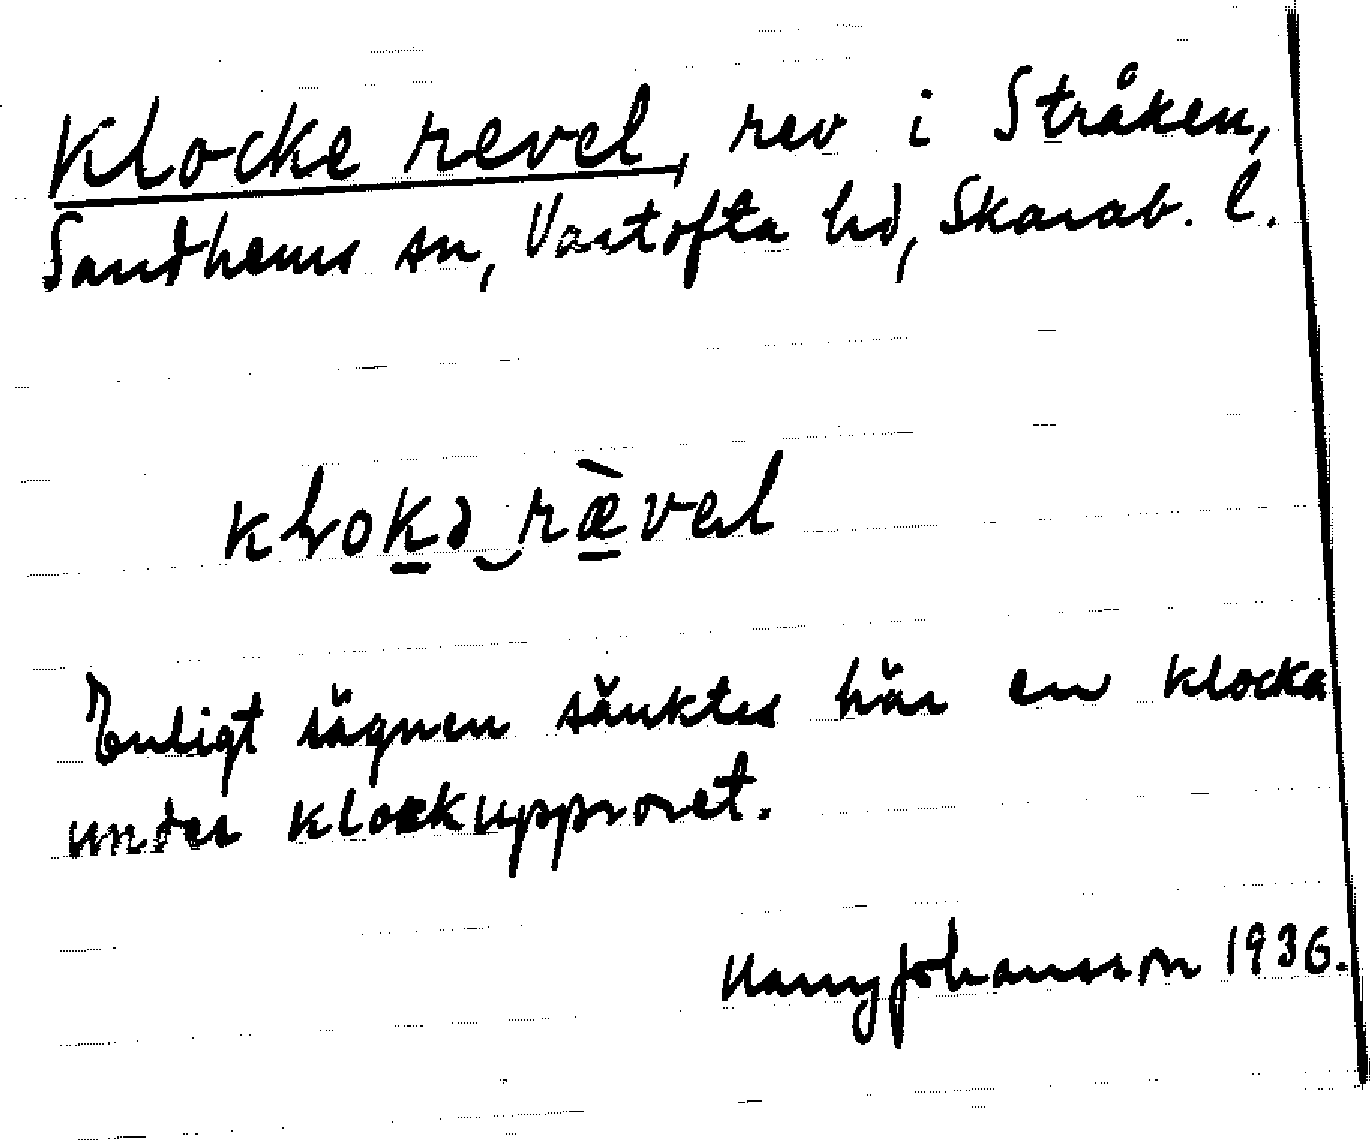 Klocke revel, rev i Stråken,
Sandhems sn, Vartofta hd, Skarab. l.
klokə rævel
Enligt sägnen sänktes här en klocka
under klockupproret.
Harry Johansson 1936.